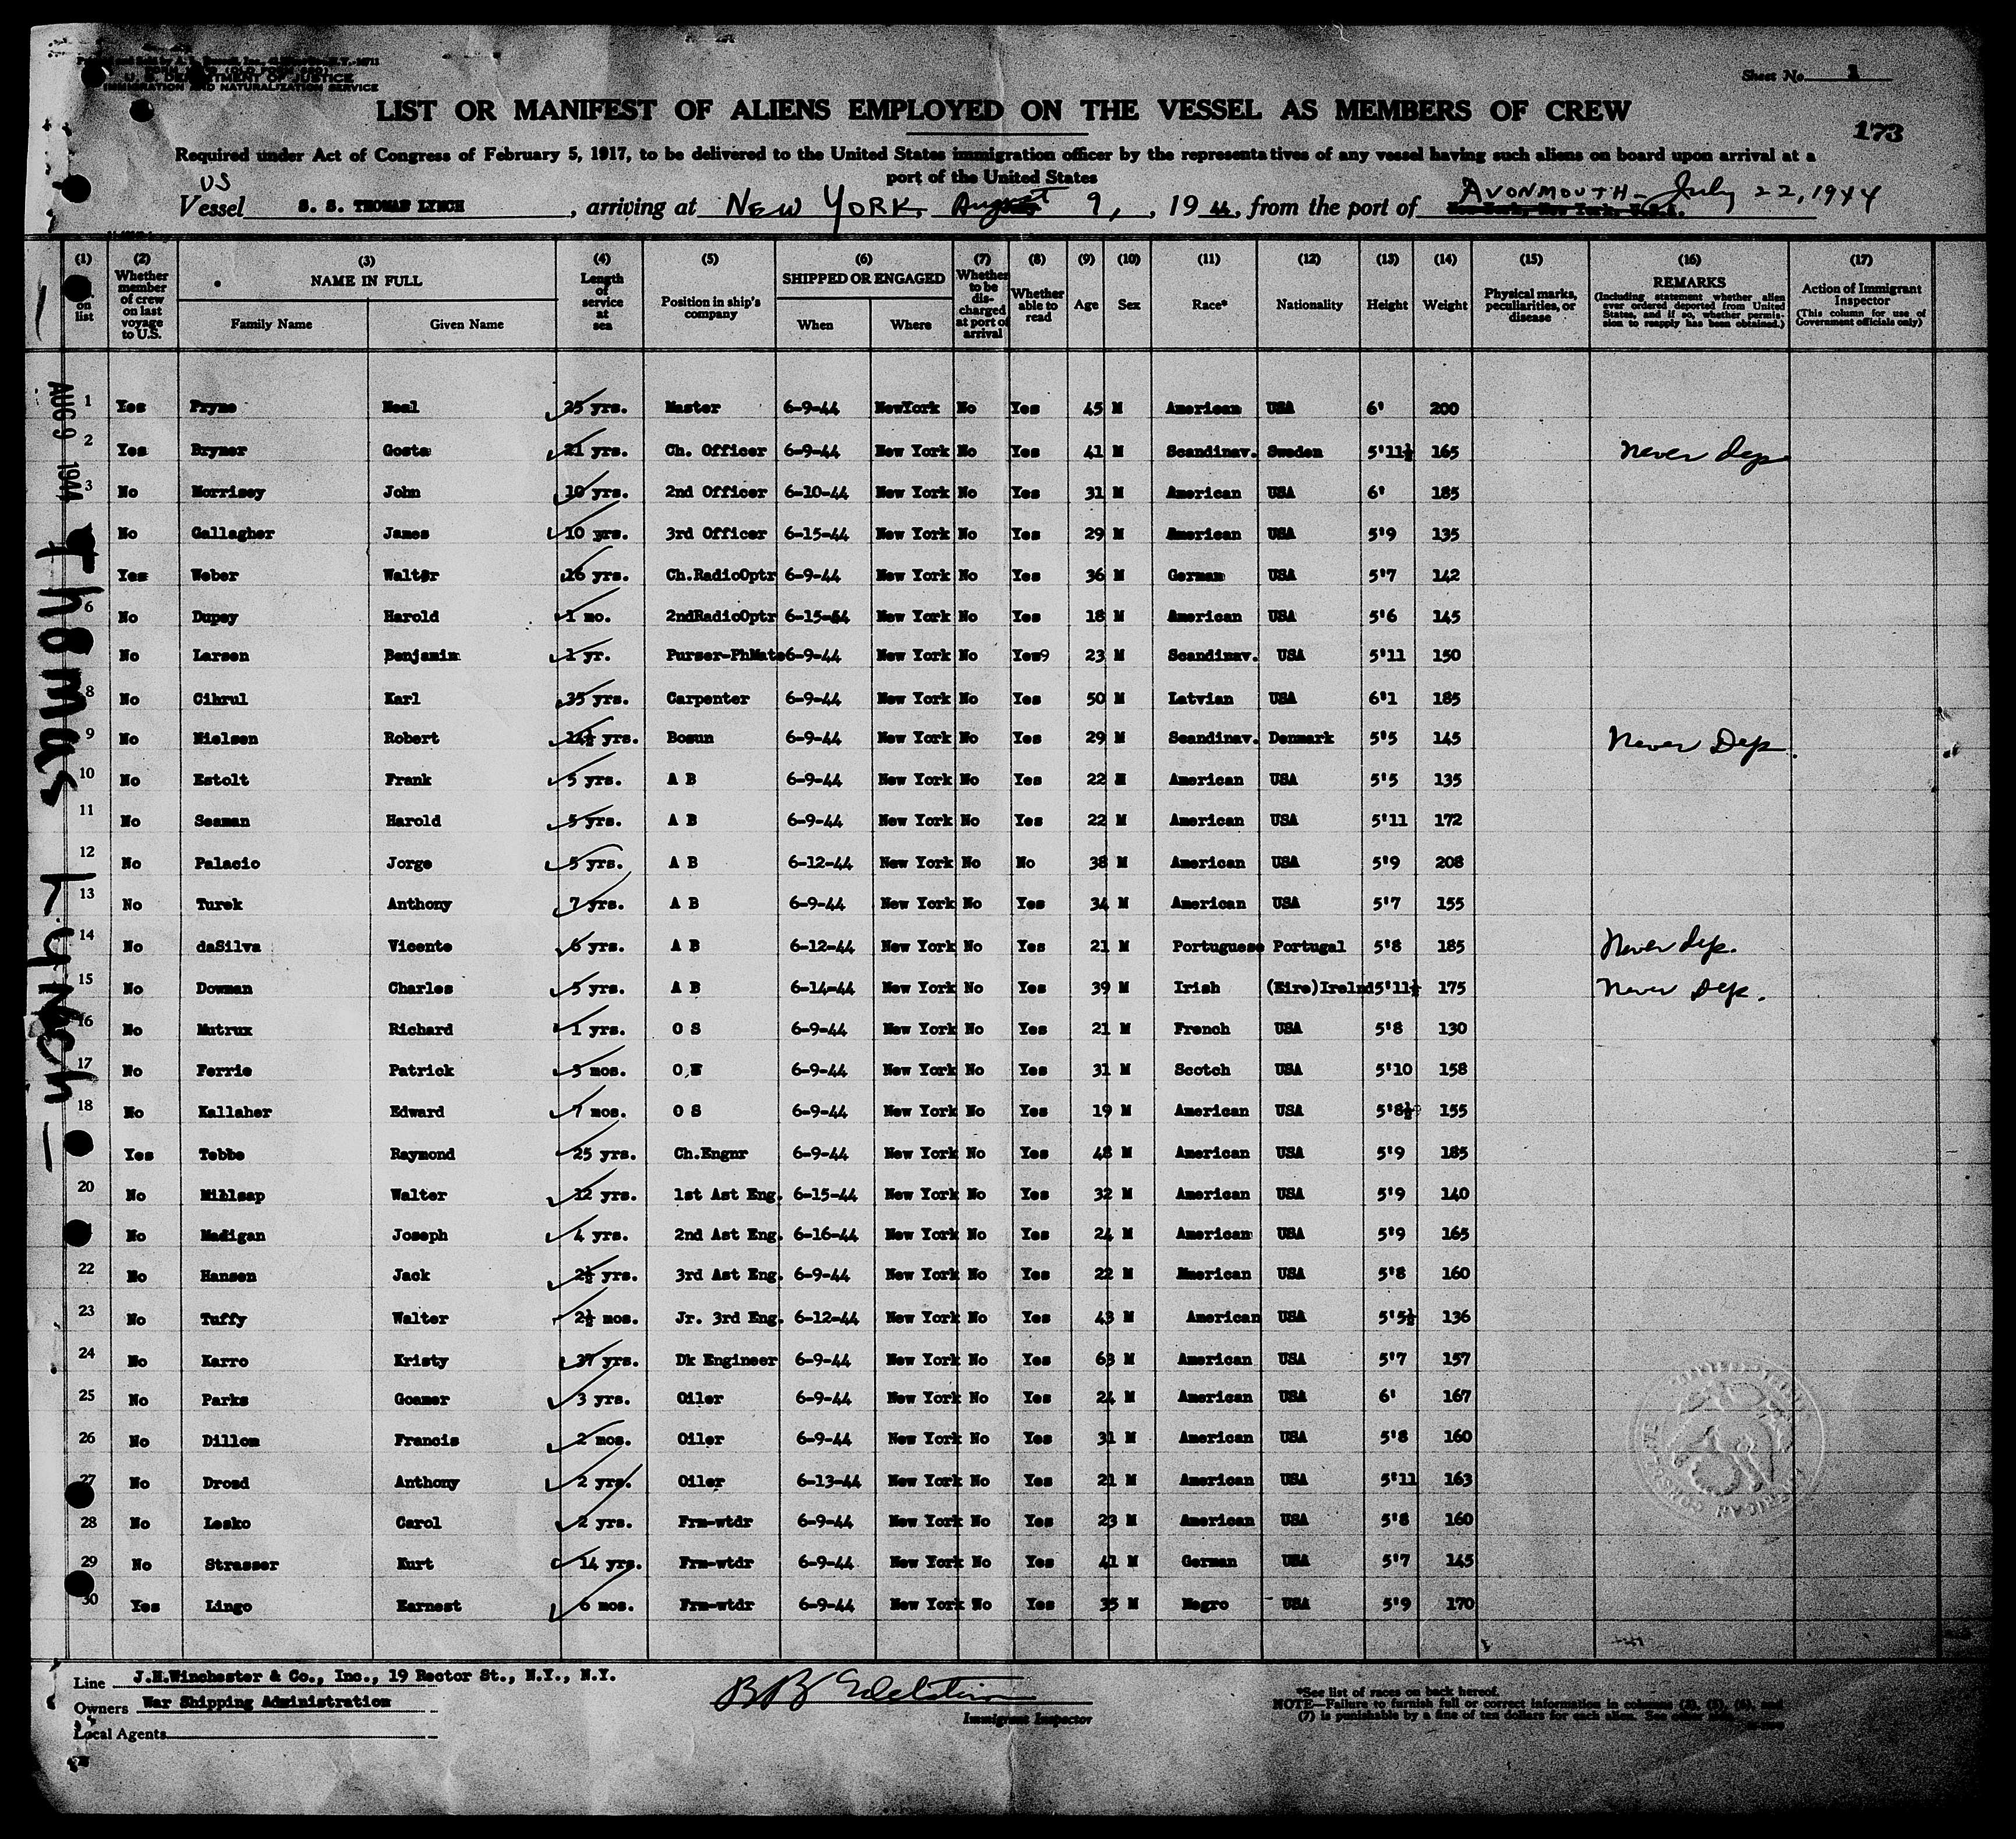 U. S. DEPARTMENT OF JUSTICE
IMMIGRATION AND NATURALIZATION SERVICE
Sheet No. 1
LIST OR MANIFEST OF ALIENS EMPLOYED ON THE VESSEL AS MEMBERS OF CREW
173
Required under Act of Congress of February 5, 1917, to be delivered to the United States immigration officer by the representatives of any vessel having such aliens on board upon arrival at a
port of the United States
US
Vessel S. S. THOMAS LYNCH, arriving at NEW YORK, August 9, 1944, from the port of AVONMOUTH - July 22, 1944
New York, New York, U.S.A.
(1) (2) (3) (4) (5) (6) (7) (8) (9) (10) (11) (12) (13) (14) (15) (16) (17)
on list
Whether member of crew on last voyage to U.S.
NAME IN FULL
Family Name Given Name
Length of service at sea
Position in ship's company
SHIPPED OR ENGAGED
When Where
Whether to be discharged at port of arrival
Whether able to read
Age
Sex
Race*
Nationality
Height
Weight
Physical marks, peculiarities, or disease
REMARKS
(Including statement whether alien ever ordered deported from United States, and if so, whether permission to reapply has been obtained.)
Action of Immigrant Inspector
(This column for use of Government officials only)
AUG 9 1944
Thomas Lynch
1 Yes Pryne Neal 25 yrs. Master 6-9-44 NewYork No Yes 45 M American USA 6' 200
2 Yes Brymer Gosta 21 yrs. Ch. Officer 6-9-44 New York No Yes 41 M Scandinav. Sweden 5'11½ 165 Never dep
3 No Morrisey John 10 yrs. 2nd Officer 6-10-44 New York No Yes 31 M American USA 6' 185
No Gallagher James 10 yrs. 3rd Officer 6-15-44 New York No Yes 29 M American USA 5'9 135
Yes Weber Walter 16 yrs. Ch.RadioOptr 6-9-44 New York No Yes 36 M German USA 5'7 142
6 No Dupsy Harold 1 mo. 2ndRadioOptr 6-15-44 New York No Yes 18 M American USA 5'6 145
No Larsen Benjamin 1 yr. Purser-PhMate 6-9-44 New York No Yes9 23 M Scandinav. USA 5'11 150
8 No Cihrul Karl 35 yrs. Carpenter 6-9-44 New York No Yes 50 M Latvian USA 6'1 185
9 No Nielsen Robert 14½ yrs. Bosun 6-9-44 New York No Yes 29 M Scandinav. Denmark 5'5 145 Never Dep.
10 No Estolt Frank 5 yrs. A B 6-9-44 New York No Yes 22 M American USA 5'5 135
11 No Seaman Harold 5 yrs. A B 6-9-44 New York No Yes 22 M American USA 5'11 172
12 No Palacio Jorge 5 yrs. A B 6-12-44 New York No No 38 M American USA 5'9 208
13 No Turek Anthony 7 yrs. A B 6-9-44 New York No Yes 34 M American USA 5'7 155
14 No daSilva Vicente 6 yrs. A B 6-12-44 New York No Yes 21 M Portuguese Portugal 5'8 185 Never dep.
15 No Dowman Charles 5 yrs. A B 6-14-44 New York No Yes 39 M Irish (Eire)Irelnd 5'11½ 175 Never Dep.
16 No Mutrux Richard 1 yrs. O S 6-9-44 New York No Yes 21 M French USA 5'8 130
17 No Ferrie Patrick 3 mos. O 6-9-44 New York No Yes 31 M Scotch USA 5'10 158
18 No Kallaher Edward 7 mos. O S 6-9-44 New York No Yes 19 M American USA 5'8½ 155
Yes Tebbe Raymond 25 yrs. Ch.Engnr 6-9-44 New York No Yes 48 M American USA 5'9 185
20 No Millsap Walter 12 yrs. 1st Ast Eng. 6-15-44 New York No Yes 32 M American USA 5'9 140
No Madigan Joseph 4 yrs. 2nd Ast Eng. 6-16-44 New York No Yes 24 M American USA 5'9 165
22 No Hansen Jack 2½ yrs. 3rd Ast Eng. 6-9-44 New York No Yes 22 M American USA 5'8 160
23 No Tuffy Walter 2½ mos. Jr. 3rd Eng. 6-12-44 New York No Yes 43 M American USA 5'5½ 136
24 No Karro Kristy 37 yrs. Dk Engineer 6-9-44 New York No Yes 63 M American USA 5'7 157
25 No Parks Goamer 3 yrs. Oiler 6-9-44 New York No Yes 24 M American USA 6' 167
26 No Dillon Francis 2 mos. Oiler 6-9-44 New York No Yes 31 M American USA 5'8 160
27 No Drosd Anthony 2 yrs. Oiler 6-13-44 New York No Yes 21 M American USA 5'11 163
28 No Lesko Carol 2 yrs. Frm-wtdr 6-9-44 New York No Yes 23 M American USA 5'8 160
29 No Strasser Kurt 14 yrs. Frm-wtdr 6-9-44 New York No Yes 41 M German USA 5'7 145
30 Yes Lingo Earnest 6 mos. Frm-wtdr 6-9-44 New York No Yes 35 M Negro USA 5'9 170
Line J.H.Winchester & Co., Inc., 19 Rector St., N.Y., N.Y.
Owners War Shipping Administration
Local Agents
B B Edelstein
Immigrant Inspector
*See list of races on back hereof.
NOTE—Failure to furnish full or correct information in columns (2), (5), (6), and
(7) is punishable by a fine of ten dollars for each alien. See other side.